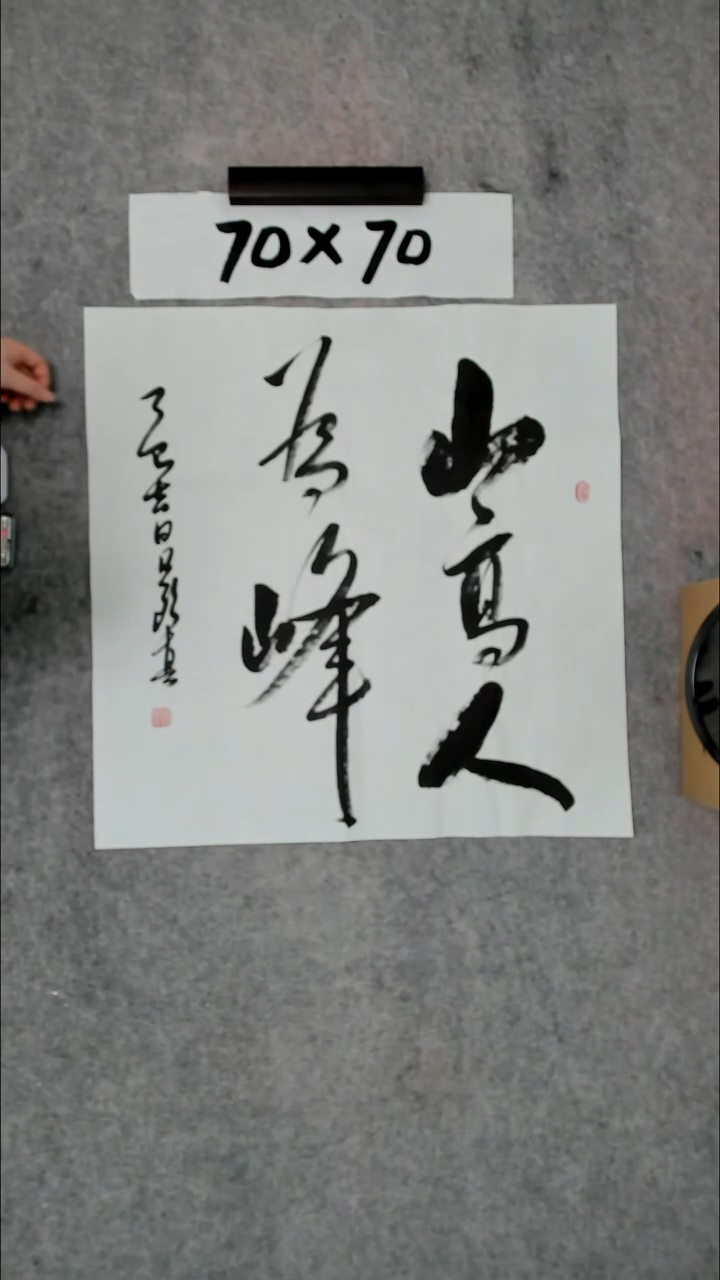 70×70
山高人
為峰
乙巳吉日